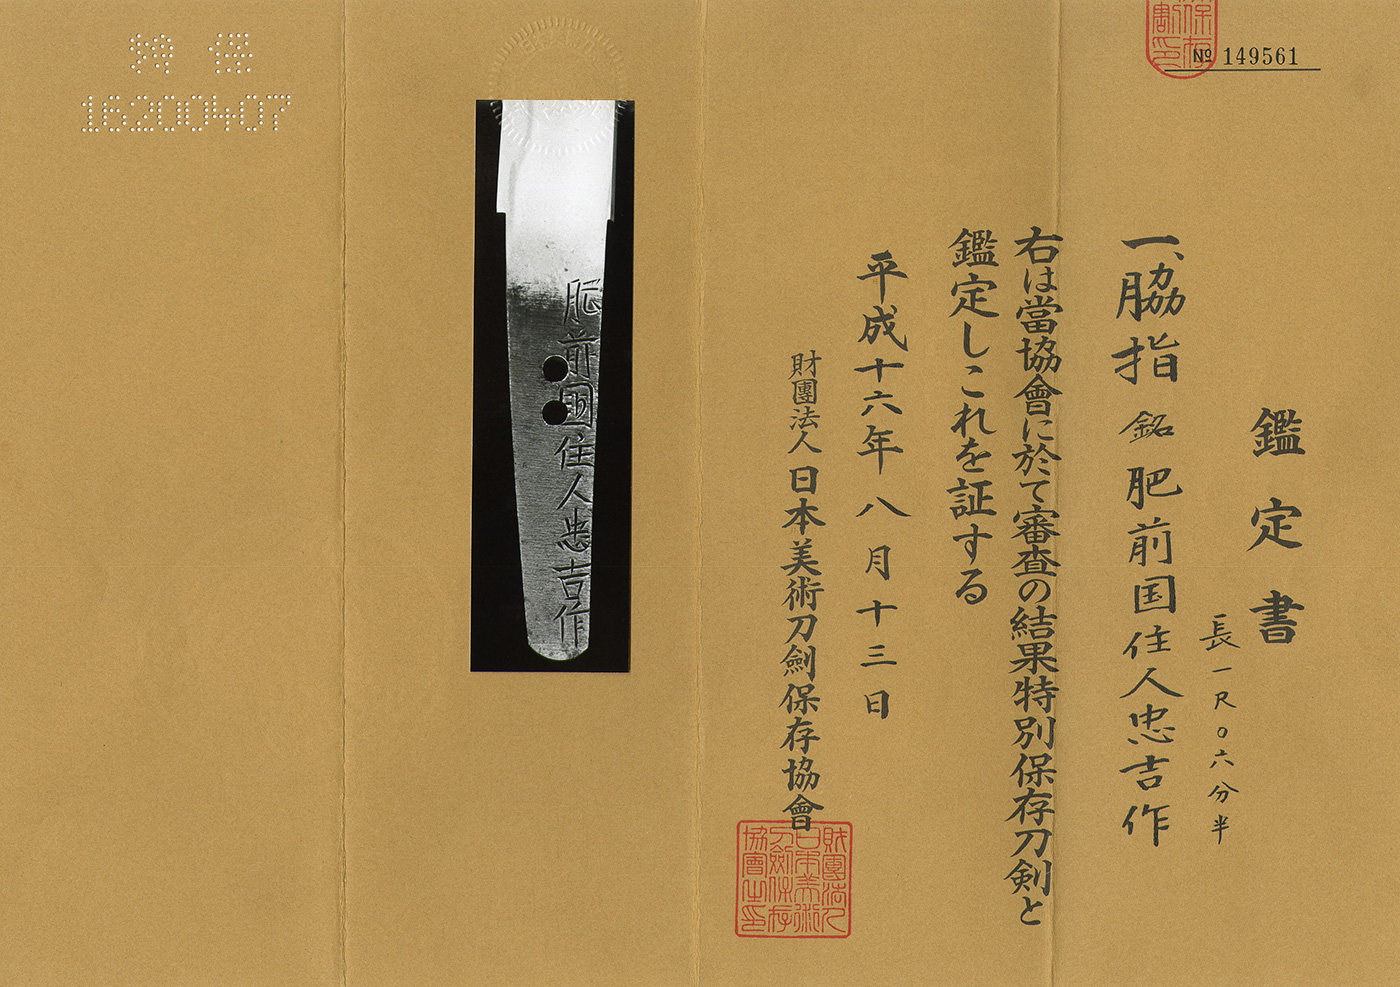 № 149561
鑑定書
一、脇指 銘 肥前国住人忠吉作
長一尺〇六分半
右は當協會に於て審査の結果特別保存刀剣と
鑑定しこれを証する
平成十六年八月十三日
財團法人日本美術刀劍保存協會
財團法人
日本美術
刀劍保存
協會之印
肥前国住人忠吉作
特保
16200407